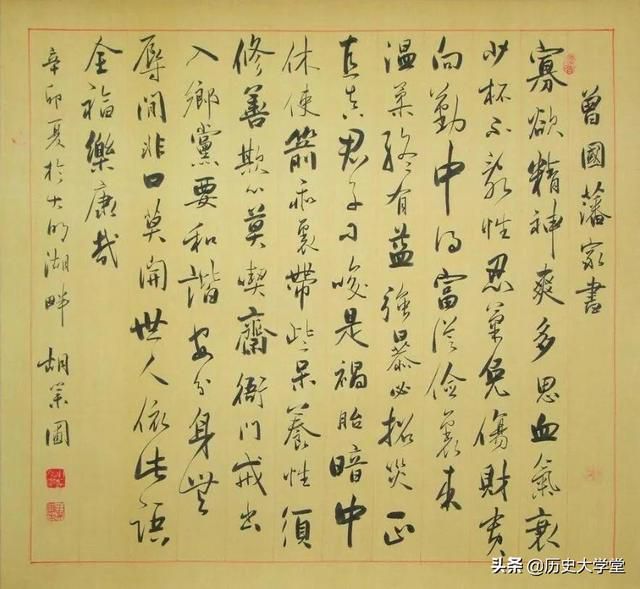 曾國藩家書
寡欲精神爽多思血氣衰
少杯不亂性忍氣免傷財貴
向勤中得富從儉裏來
温柔終有益強暴必招災正
直真君子刁唆是禍胎暗中
休使箭乖裏帶些呆養性須
修善欺心莫喫齋衙門戒出
入鄉黨要和諧安分身無
辱閒非口莫開世人依此語
全福樂康哉
辛卯夏於大明湖畔 胡
头条 @历史大学堂